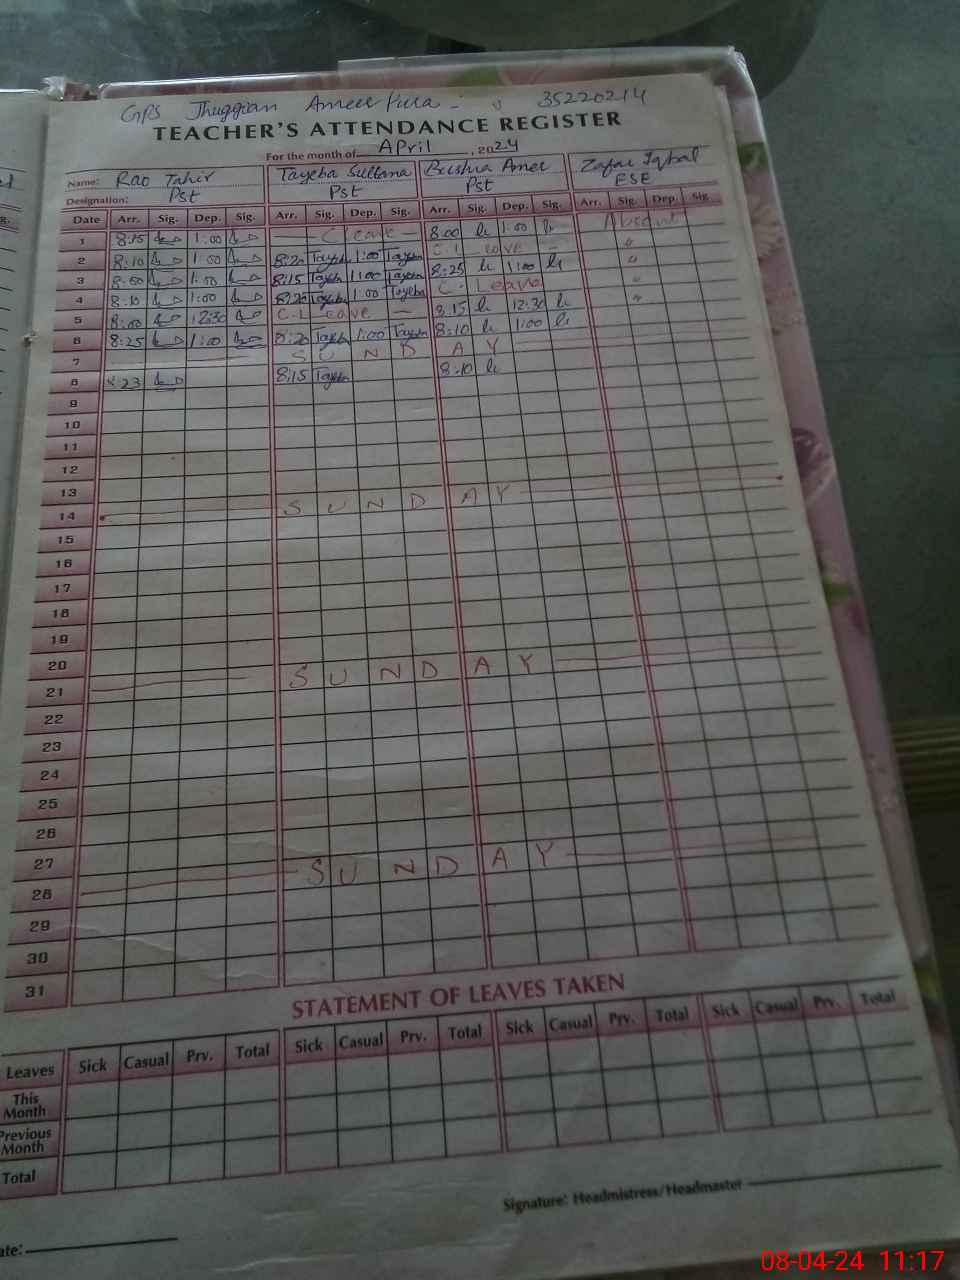 GPS Jhuggian Ameer Pura - 35220214
TEACHER'S ATTENDANCE REGISTER
For the month of April, 2024
Name: Rao Tahir Tayeba Sultana Bushra Amer Zafar Iqbal
Designation: Pst Pst Pst ESE
Date Arr. Sig. Dep. Sig. Arr. Sig. Dep. Sig. Arr. Sig. Dep. Sig. Arr. Sig. Dep. Sig.
1 8:15 1:00 - C Leave - 8:00 1:00 Absent
2 8:10 1:00 8:20 Tayeba 1:00 Tayeba C.L eave - "
3 8:00 1:00 8:15 Tayeba 1:00 Tayeba 8:25 1:00 "
4 8:10 1:00 8:20 Tayeba 1:00 Tayeba C. Leave "
5 8:00 12:30 C.L eave - 8:15 12:30
6 8:25 1:00 8:20 Tayeba 1:00 Tayeba 8:10 1:00
7 SUNDAY
8 8:23 8:15 Tayeba 8:10
9
10
11
12
13
14 SUNDAY
15
16
17
18
19
20
21 SUNDAY
22
23
24
25
26
27
28 SUNDAY
29
30
31
STATEMENT OF LEAVES TAKEN
Leaves Sick Casual Prv. Total Sick Casual Prv. Total Sick Casual Prv. Total Sick Casual Prv. Total
This Month
Previous Month
Total
Signature: Headmistress/Headmaster
08-04-24 11:17